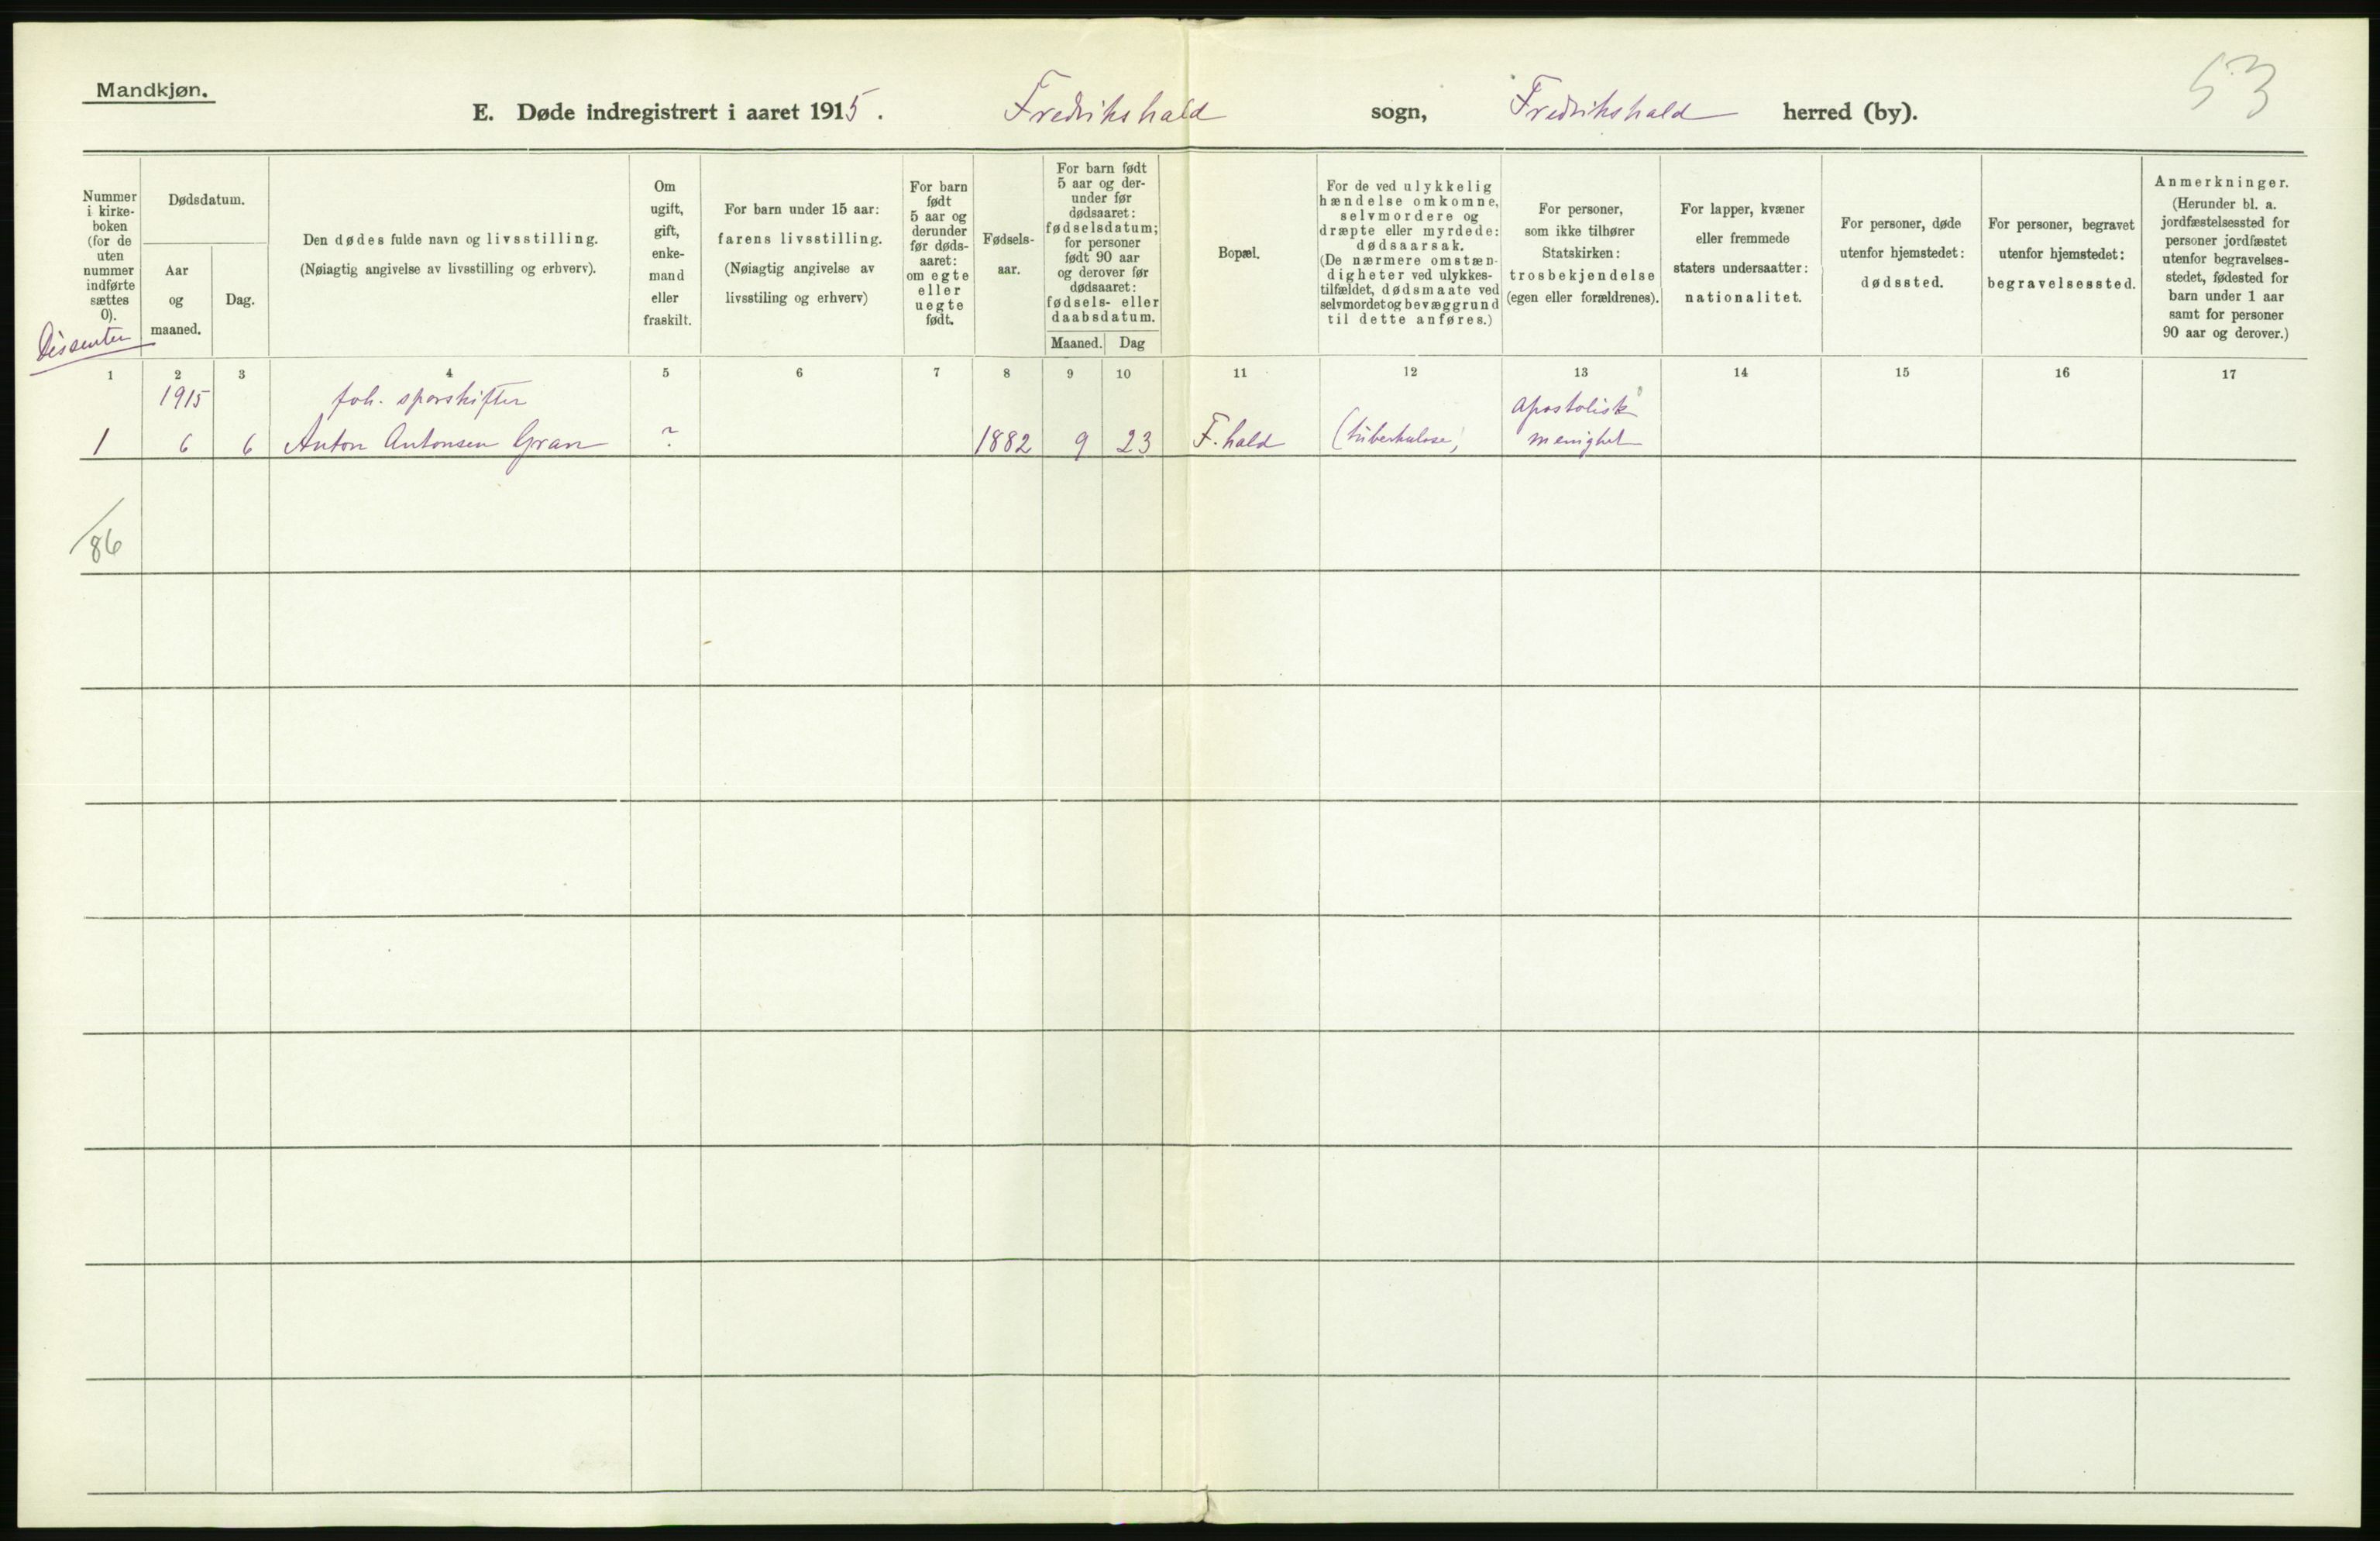 Mandkjøn.
53
E. Døde indregistrert i aaret 1915. Fredrikshald sogn, Fredrikshald herred (by).
Nummer
i kirke-
boken
(for de
uten
nummer
indførte
sættes
0).
Dissenter
Dødsdatum.
Aar
og
maaned.
Dag.
Den dødes fulde navn og livsstilling.
(Nøiagtig angivelse av livsstilling og erhverv).
Om
ugift,
gift,
enke-
mand
eller
fraskilt.
For barn under 15 aar:
farens livsstilling.
(Nøiagtig angivelse av
livsstiling og erhverv)
For barn
født
5 aar og
derunder
før døds-
aaret:
om egte
eller
uegte
født.
Fødsels-
aar.
For barn født
5 aar og der-
under før
dødsaaret:
fødselsdatum;
for personer
født 90 aar
og derover før
dødsaaret:
fødsels- eller
daabsdatum.
Maaned. Dag
Bopæl.
For de ved ulykkelig
hændelse omkomne,
selvmordere og
dræpte eller myrdede:
dødsaarsak.
(De nærmere omstæn-
digheter ved ulykkes-
tilfældet, dødsmaate ved
selvmordet og bevæggrund
til dette anføres.)
For personer,
som ikke tilhører
Statskirken:
trosbekjendelse
(egen eller forældrenes).
For lapper, kvæner
eller fremmede
staters undersaatter:
nationalitet.
For personer, døde
utenfor hjemstedet:
dødssted.
For personer, begravet
utenfor hjemstedet:
begravelsessted.
Anmerkninger.
(Herunder bl. a.
jordfæstelsessted for
personer jordfæstet
utenfor begravelses-
stedet, fødested for
barn under 1 aar
samt for personer
90 aar og derover.)
1 2 3 4 5 6 7 8 9 10 11 12 13 14 15 16 17
1915 sporskifter Apostolisk
1 6 6 Anton Antonsen Gran ? 1882 9 23 F.hald (tuberkulose) menighet
/86